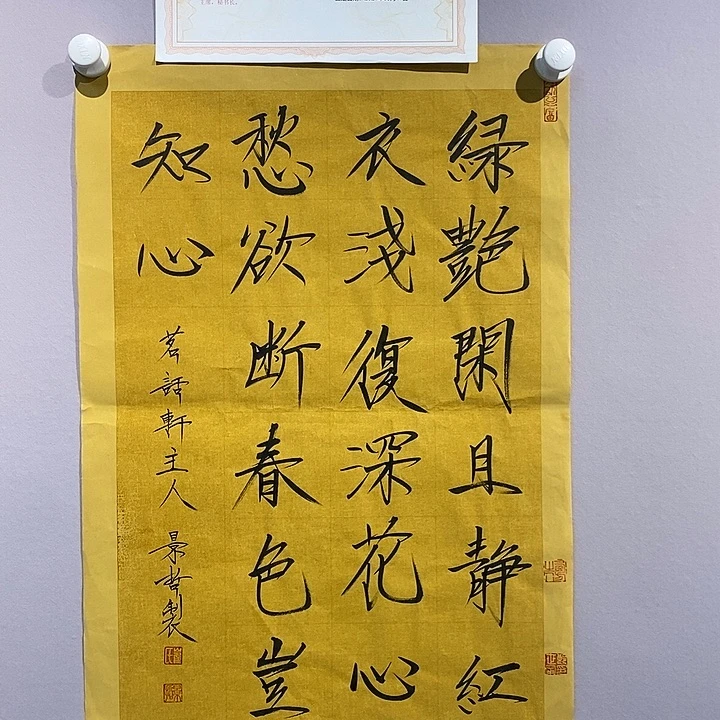 綠艷閑且靜紅
衣淺復深花心
愁欲断春色豈
知心
茗話軒主人
景哲製